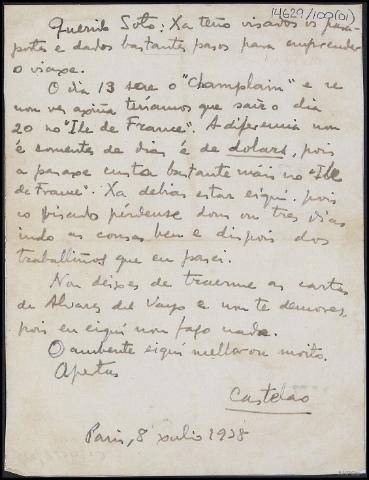 14629/100(01)
Querido Soto: Xa teño visados os pasa-
portes e dados bastantes pasos para emprender
o viaxe.
O día 13 sare o "Champlain" e se
non ves axiña teríamos que saír o día
20 no "Ile de France". A diferencia non
é somentes de días é de dolars, pois
a pasaxe custa bastante máis no "Ile
de France". Xa debías estar eiquí, pois
no visado pérdense dous ou tres días
indo as cousas ben e dispois dos
traballiños que eu pasei.
Non deixes de traerme as cartas
de Alvares del Vayo e non te demores,
pois eu eiquí non fago nada.
O ambente eiquí mellorou moito.
Apertas
Castelao
París, 8 xulio 1938